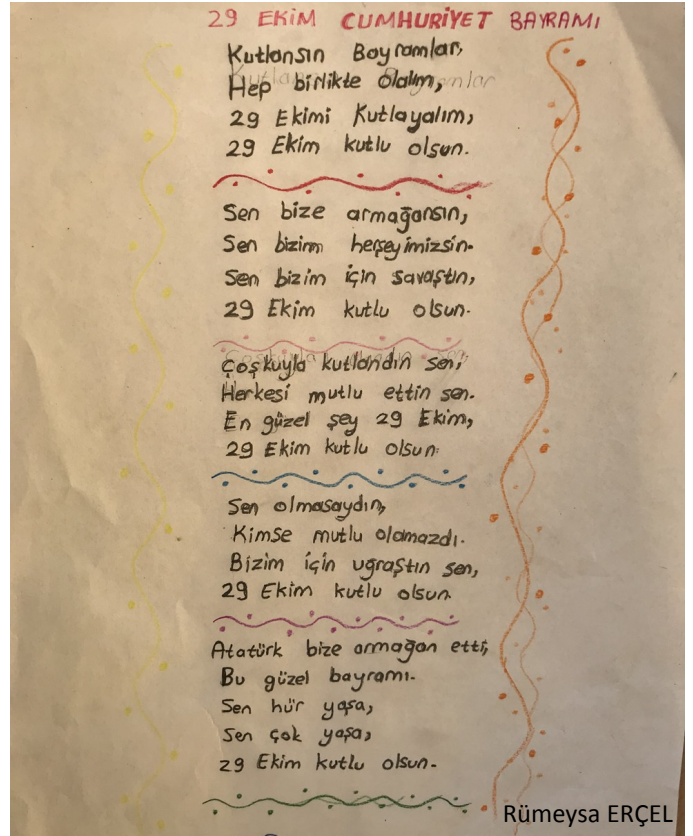 29 EKİM CUMHURİYET BAYRAMI
Kutlansın Bayramlar,
Hep birlikte olalım,
29 Ekimi Kutlayalım,
29 Ekim kutlu olsun.
Sen bize armağansın,
Sen bizim herşeyimizsin.
Sen bizim için savaştın,
29 Ekim kutlu olsun.
Çoşkuyla kutlandın sen,
Herkesi mutlu ettin sen.
En güzel şey 29 Ekim,
29 Ekim kutlu olsun.
Sen olmasaydın,
Kimse mutlu olamazdı.
Bizim için uğraştın sen,
29 Ekim kutlu olsun.
Atatürk bize armağan etti,
Bu güzel bayramı.
Sen hür yaşa,
Sen çok yaşa,
29 Ekim kutlu olsun.
Rümeysa ERÇEL